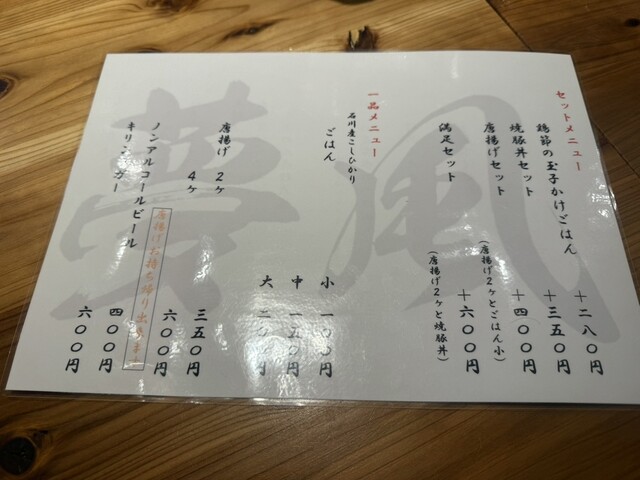 セットメニュー
鶏節の玉子かけごはん ＋二八〇円
焼豚丼セット ＋三五〇円
唐揚げセット ＋四〇〇円
（唐揚げ２ケとごはん小）
満足セット ＋六〇〇円
（唐揚げ２ケと焼豚丼）
一品メニュー
石川産こしひかり
ごはん
小 一〇〇円
中 一五〇円
大 二〇〇円
唐揚げ ２ケ 三五〇円
４ケ 六〇〇円
唐揚げお持ち帰り出来〼
ノンアルコールビール 四〇〇円
キリンラガー 六〇〇円
風
夢